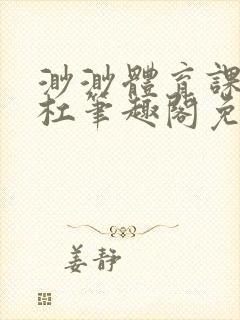 渺渺體育課
杜筆趣閣免
姜靜